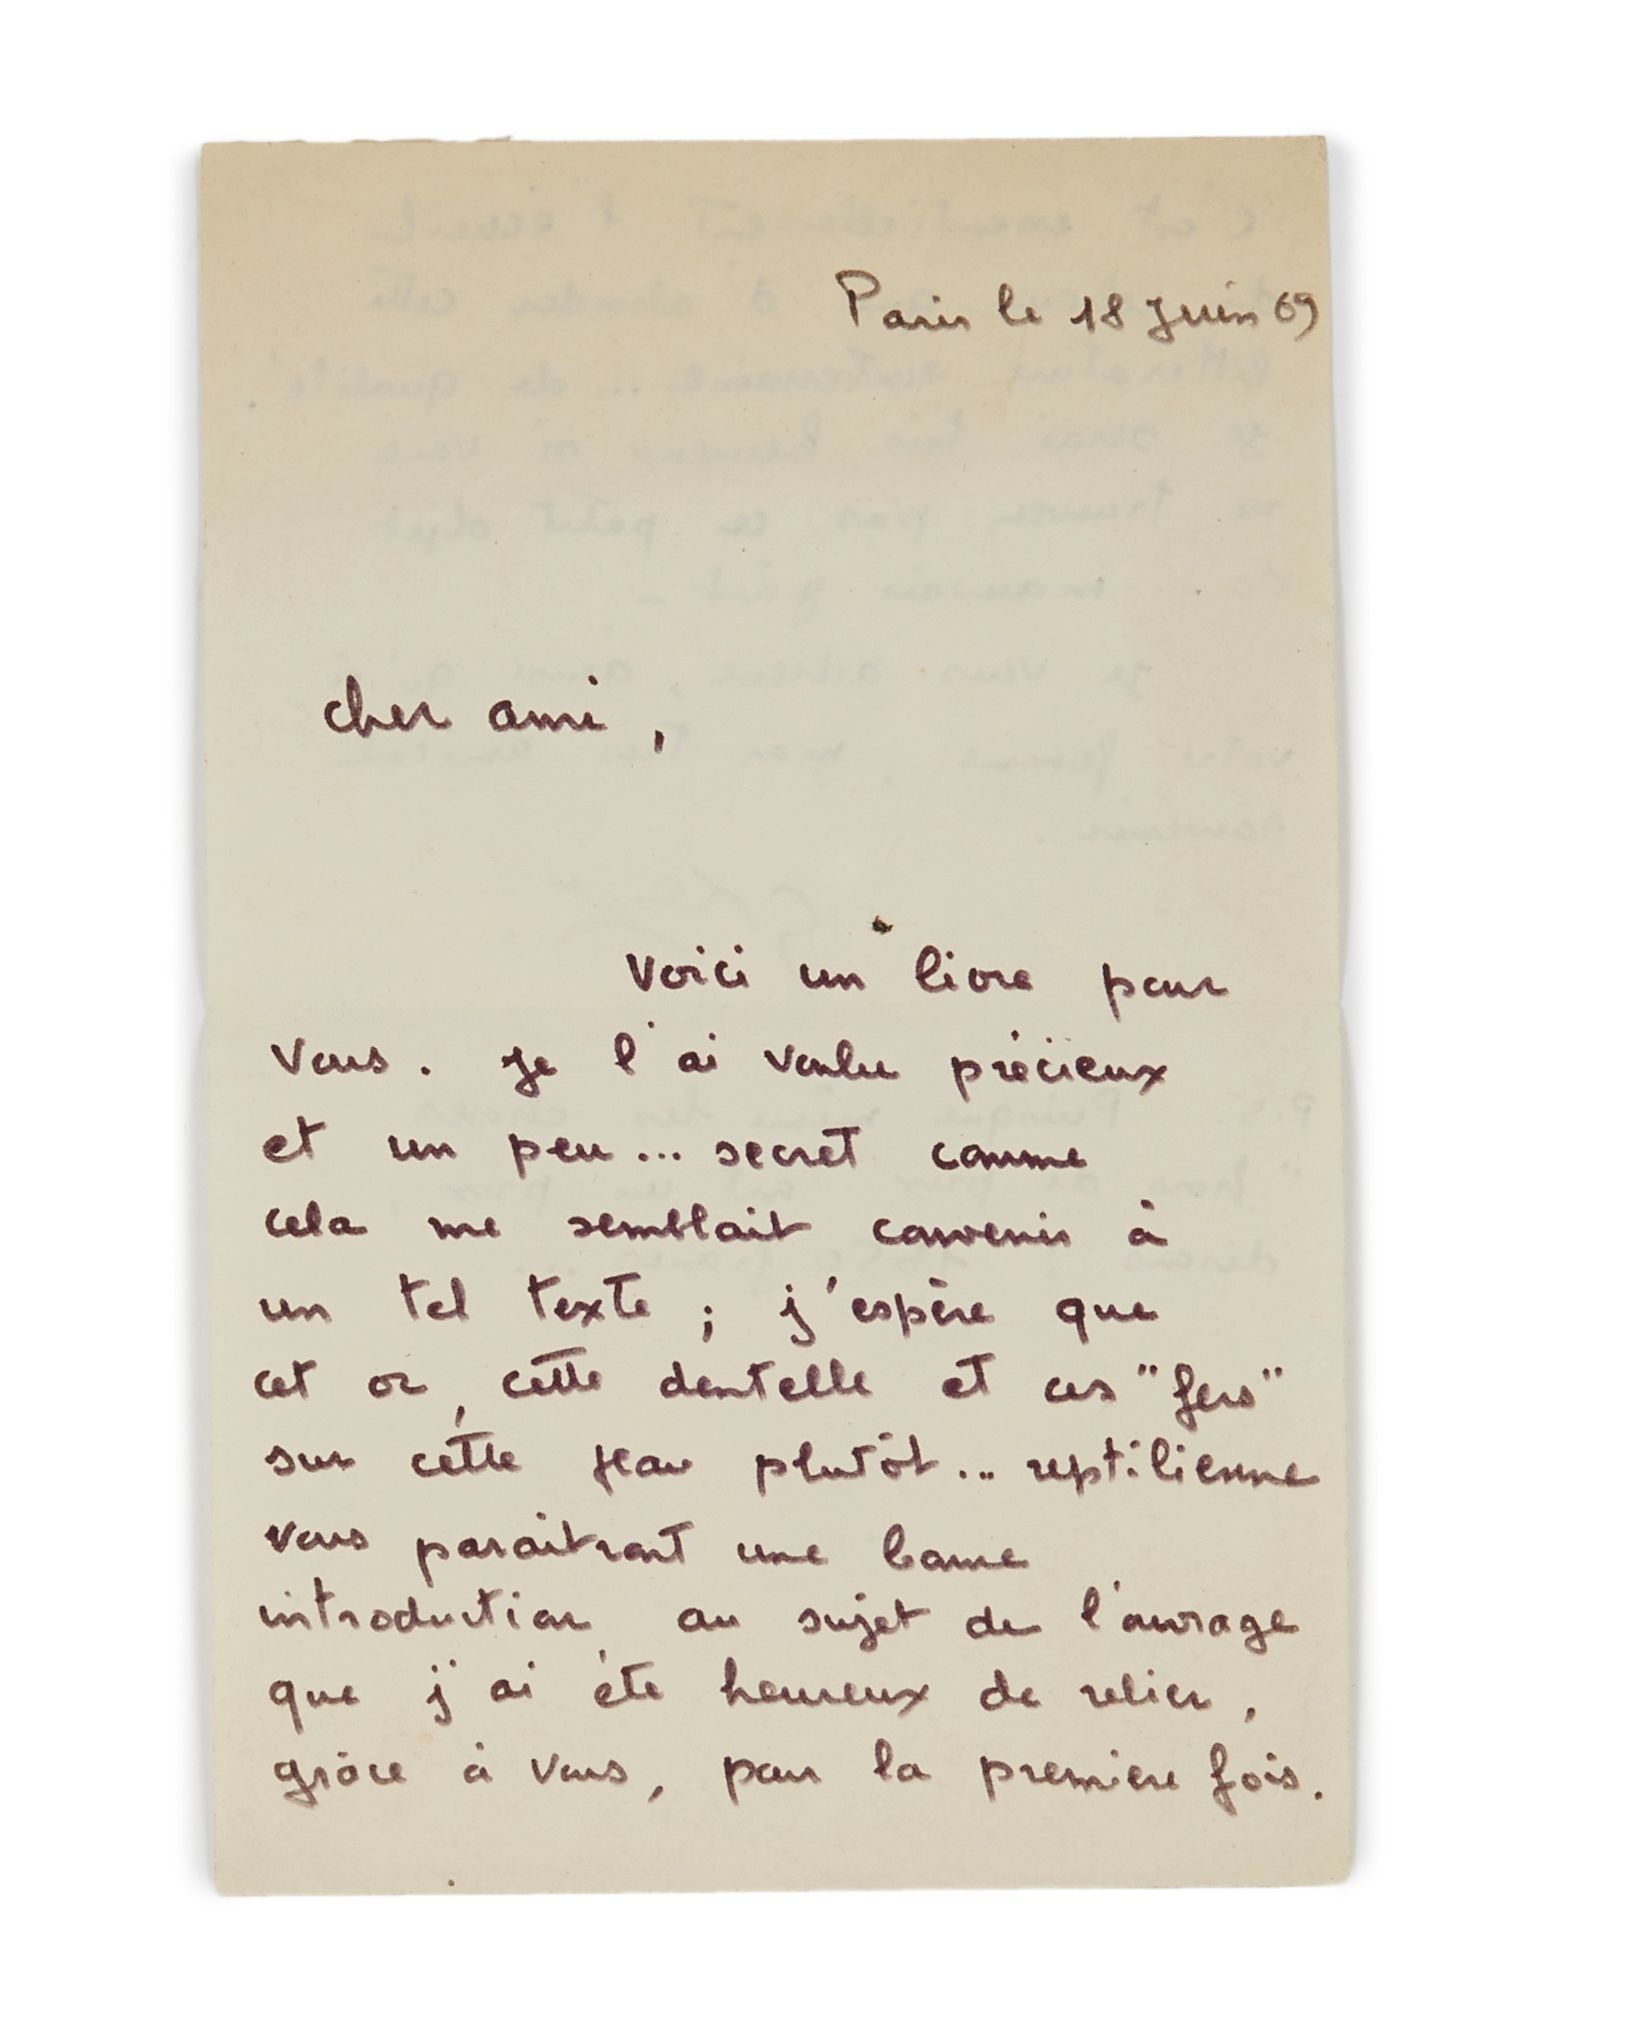 Paris le 18 Juin 69
cher ami,
Voici un livre pour
vous. je l'ai voulu précieux
et un peu... secret comme
cela me semblait convenir à
un tel texte ; j'espère que
cet or, cette dentelle et ces "fers"
sur cette peau plutôt... reptilienne
vous paraitront une bonne
introduction au sujet de l'ouvrage
que j'ai été heureux de relier,
grâce à vous, pour la premiere fois.